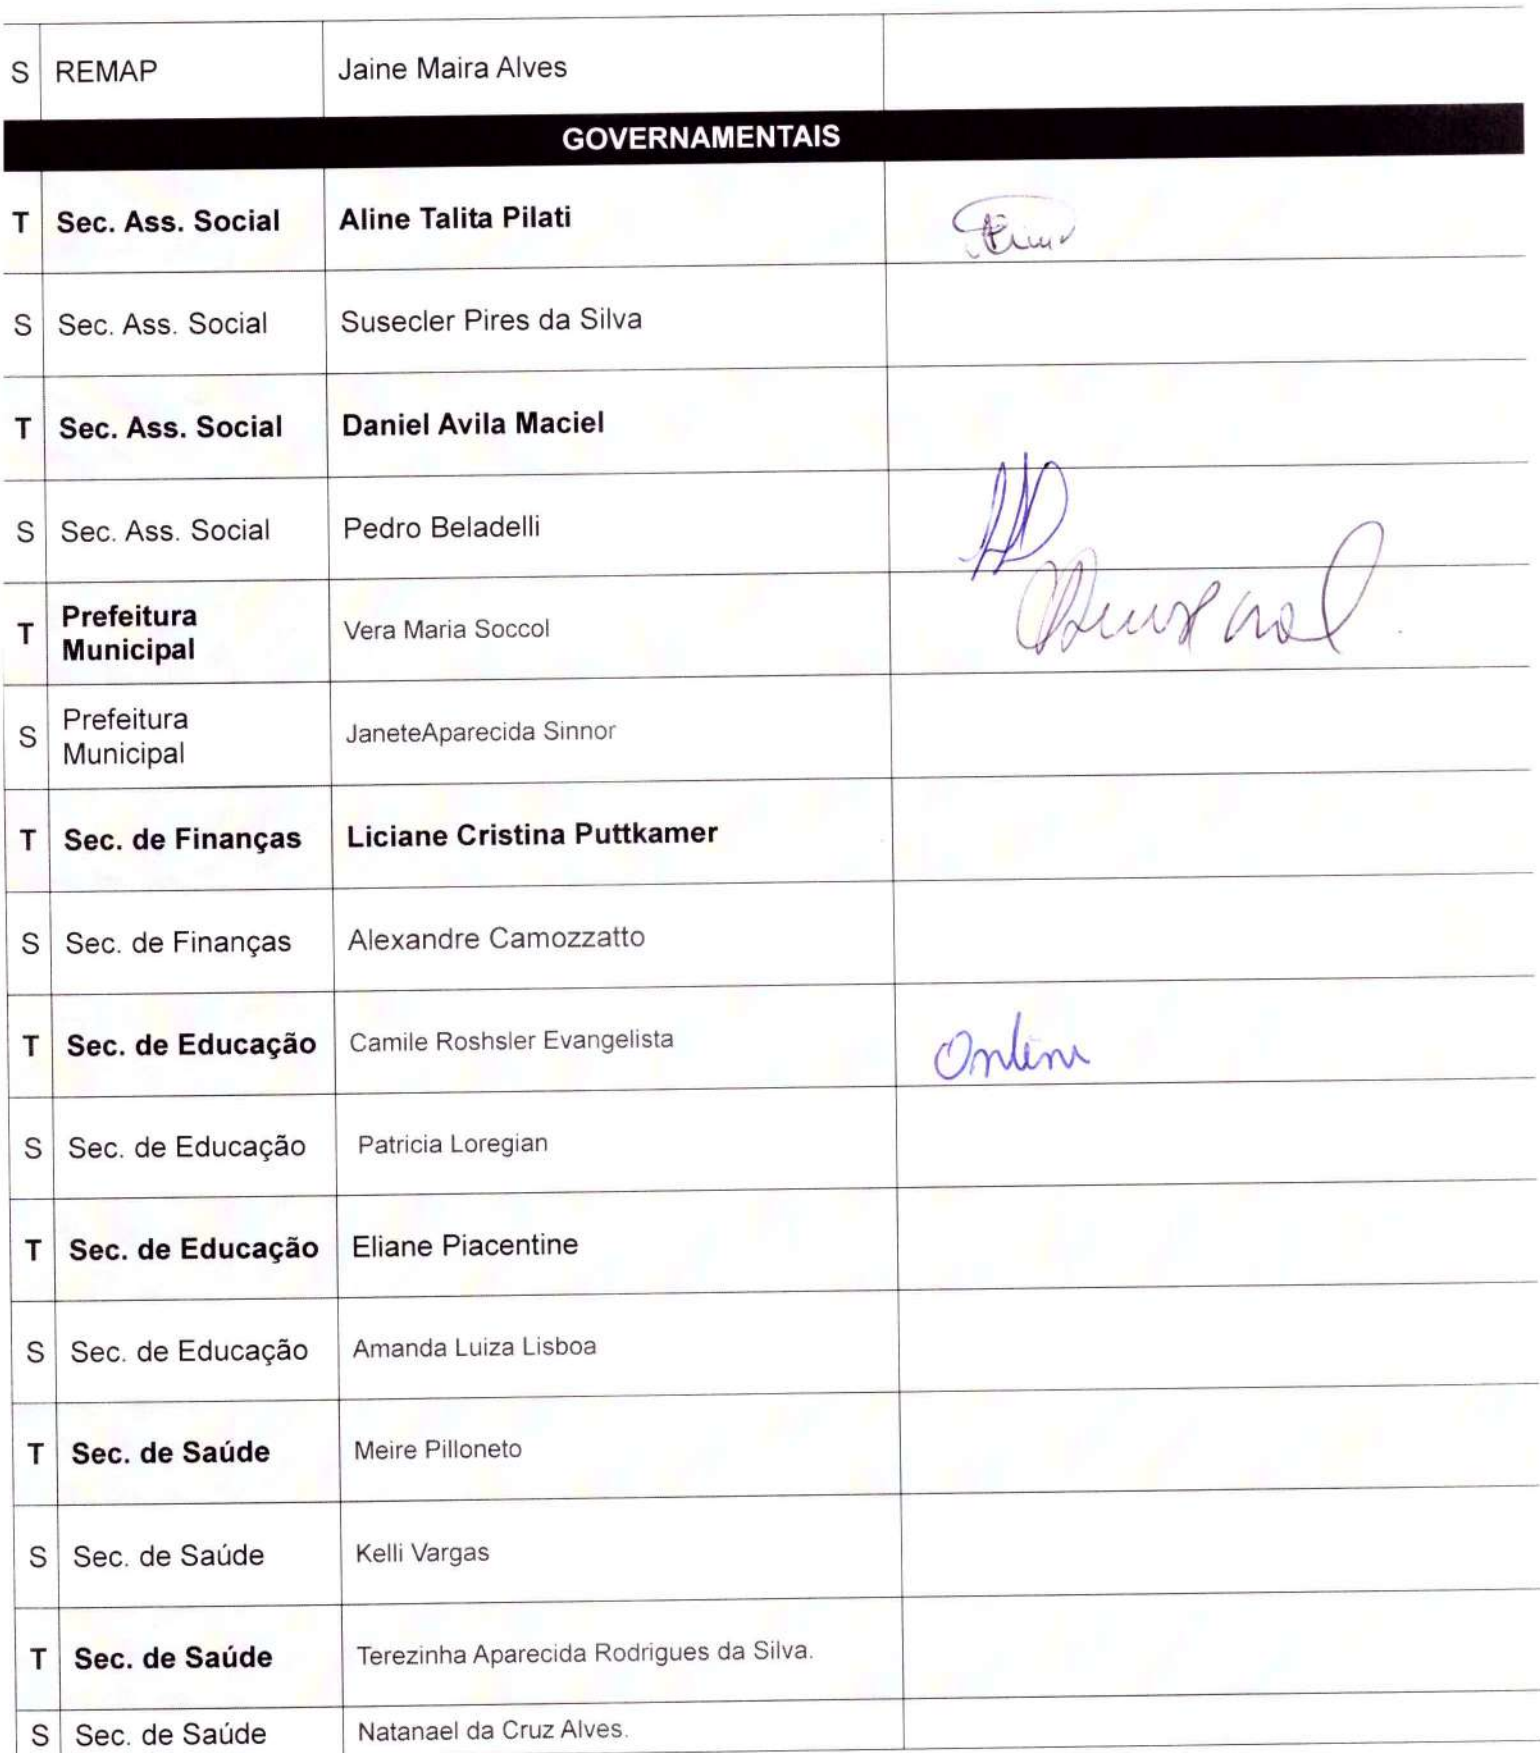 S REMAP Jaine Maira Alves
GOVERNAMENTAIS
T Sec. Ass. Social Aline Talita Pilati
S Sec. Ass. Social Susecler Pires da Silva
T Sec. Ass. Social Daniel Avila Maciel
S Sec. Ass. Social Pedro Beladelli
T Prefeitura Municipal Vera Maria Soccol
S Prefeitura Municipal JaneteAparecida Sinnor
T Sec. de Finanças Liciane Cristina Puttkamer
S Sec. de Finanças Alexandre Camozzatto
T Sec. de Educação Camile Roshsler Evangelista Online
S Sec. de Educação Patricia Loregian
T Sec. de Educação Eliane Piacentine
S Sec. de Educação Amanda Luiza Lisboa
T Sec. de Saúde Meire Pilloneto
S Sec. de Saúde Kelli Vargas
T Sec. de Saúde Terezinha Aparecida Rodrigues da Silva.
S Sec. de Saúde Natanael da Cruz Alves.